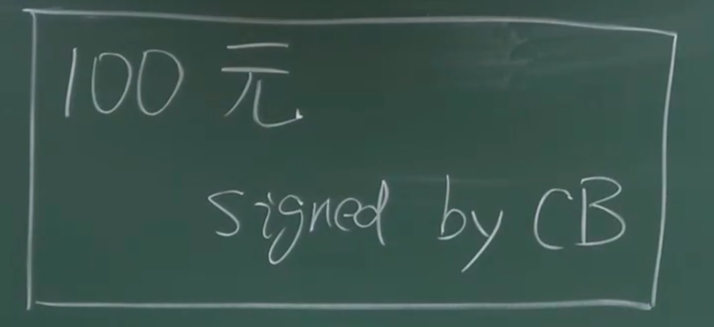 100 元
signed by CB